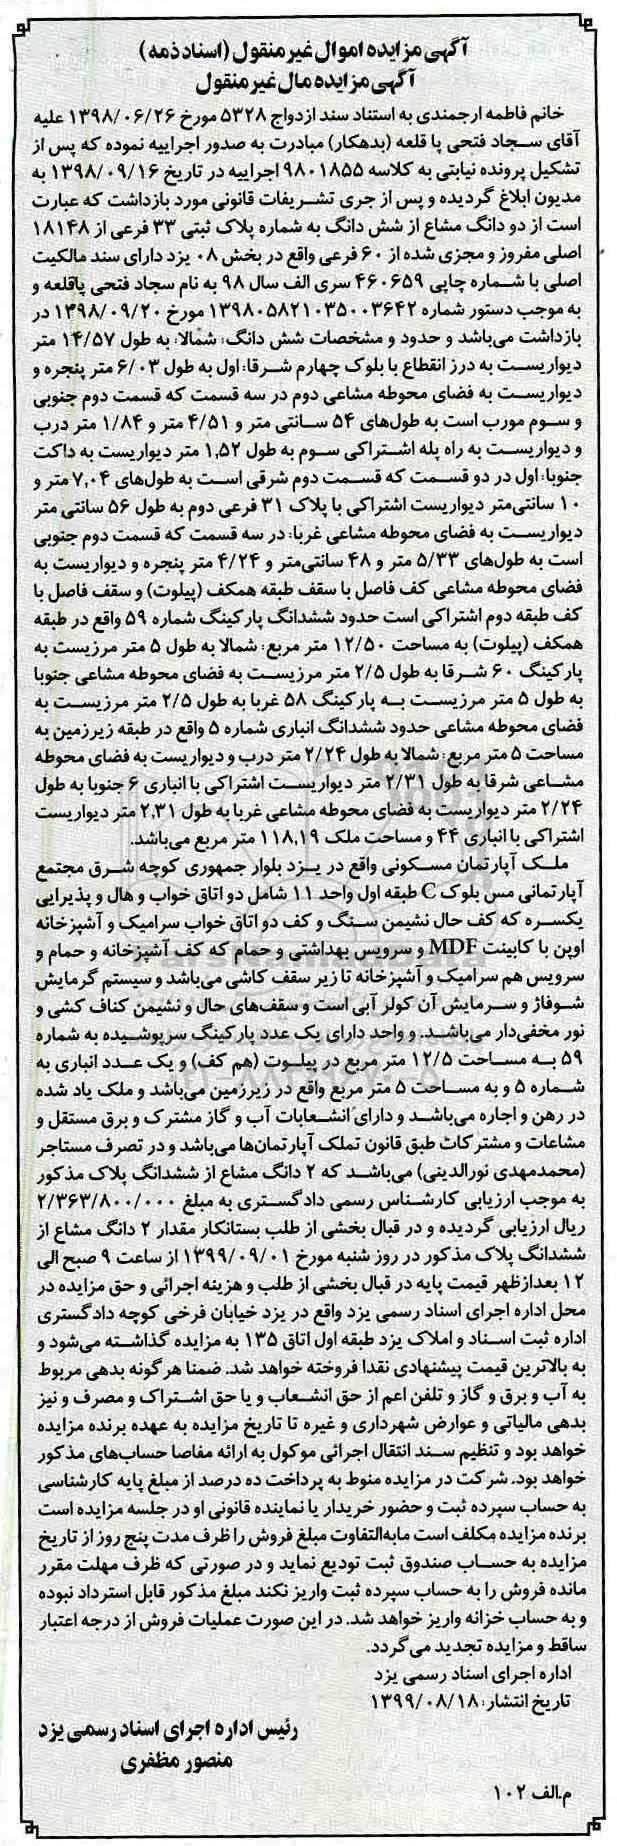 آگهی مزایده اموال غیرمنقول (اسناد ذمه)
آگهی مزایده مال غیرمنقول
خانم فاطمه ارجمندی به استناد سند ازدواج ۵۳۲۸ مورخ ۱۳۹۸/۰۶/۲۶ علیه
آقای سجاد فتحی پا قلعه (بدهکار) مبادرت به صدور اجراییه نموده که پس از
تشکیل پرونده نیابتی به کلاسه ۹۸۰۱۸۵۵ اجراییه در تاریخ ۱۳۹۸/۰۹/۱۶ به
مدیون ابلاغ گردیده و پس از جری تشریفات قانونی مورد بازداشت که عبارت
است از دو دانگ مشاع از شش دانگ به شماره پلاک ثبتی ۳۳ فرعی از ۱۸۱۴۸
اصلی مفروز و مجزی شده از ۶۰ فرعی واقع در بخش ۰۸ یزد دارای سند مالکیت
اصلی با شماره چاپی ۴۶۰۶۵۹ سری الف سال ۹۸ به نام سجاد فتحی پاقلعه و
به موجب دستور شماره ۱۳۹۸۰۵۸۲۱۰۳۵۰۰۳۶۴۲ مورخ ۱۳۹۸/۰۹/۲۰ در
بازداشت می‌باشد و حدود و مشخصات شش دانگ: شمالا: به طول ۱۴/۵۷ متر
دیواریست به درز انقطاع با بلوک چهارم شرقا: اول به طول ۶/۰۳ متر پنجره و
دیواریست به فضای محوطه مشاعی دوم در سه قسمت که قسمت دوم جنوبی
و سوم مورب است به طول‌های ۵۴ سانتی متر و ۴/۵۱ متر و ۱/۸۴ متر درب
و دیواریست به راه پله اشتراکی سوم به طول ۱,۵۲ متر دیواریست به داکت
جنوبا: اول در دو قسمت که قسمت دوم شرقی است به طول‌های ۷,۰۴ متر و
۱۰ سانتی‌متر دیواریست اشتراکی با پلاک ۳۱ فرعی دوم به طول ۵۶ سانتی متر
دیواریست به فضای محوطه مشاعی غربا: در سه قسمت که قسمت دوم جنوبی
است به طول‌های ۵/۳۳ متر و ۴۸ سانتی‌متر و ۴/۲۴ متر پنجره و دیواریست به
فضای محوطه مشاعی کف فاصل با سقف طبقه همکف (پیلوت) و سقف فاصل با
کف طبقه دوم اشتراکی است حدود ششدانگ پارکینگ شماره ۵۹ واقع در طبقه
همکف (پیلوت) به مساحت ۱۲/۵۰ متر مربع: شمالا به طول ۵ متر مرزیست به
پارکینگ ۶۰ شرقا به طول ۲/۵ متر مرزیست به فضای محوطه مشاعی جنوبا
به طول ۵ متر مرزیست به پارکینگ ۵۸ غربا به طول ۲/۵ متر مرزیست به
فضای محوطه مشاعی حدود ششدانگ انباری شماره ۵ واقع در طبقه زیرزمین به
مساحت ۵ متر مربع: شمالا به طول ۲/۲۴ متر درب و دیواریست به فضای محوطه
مشاعی شرقا به طول ۲/۳۱ متر دیواریست اشتراکی با انباری ۶ جنوبا به طول
۲/۲۴ متر دیواریست به فضای محوطه مشاعی غربا به طول ۲,۳۱ متر دیواریست
اشتراکی با انباری ۴۴ و مساحت ملک ۱۱۸,۱۹ متر مربع می‌باشد.
ملک آپارتمان مسکونی واقع در یزد بلوار جمهوری کوچه شرق مجتمع
آپارتمانی مس بلوک C طبقه اول واحد ۱۱ شامل دو اتاق خواب و هال و پذیرایی
یکسره که کف حال نشیمن سنگ و کف دو اتاق خواب سرامیک و آشپزخانه
اوپن با کابینت MDF و سرویس بهداشتی و حمام که کف آشپزخانه و حمام و
سرویس هم سرامیک و آشپزخانه تا زیر سقف کاشی می‌باشد و سیستم گرمایش
شوفاژ و سرمایش آن کولر آبی است و سقف‌های حال و نشیمن کناف کشی و
نور مخفی‌دار می‌باشد. و واحد دارای یک عدد پارکینگ سرپوشیده به شماره
۵۹ به مساحت ۱۲/۵ متر مربع در پیلوت (هم کف) و یک عدد انباری به
شماره ۵ و به مساحت ۵ متر مربع واقع در زیرزمین می‌باشد و ملک یاد شده
در رهن و اجاره می‌باشد و دارای انشعابات آب و گاز مشترک و برق مستقل و
مشاعات و مشترکات طبق قانون تملک آپارتمان‌ها می‌باشد و در تصرف مستاجر
(محمدمهدی نورالدینی) می‌باشد که ۲ دانگ مشاع از ششدانگ پلاک مذکور
به موجب ارزیابی کارشناس رسمی دادگستری به مبلغ ۲/۳۶۳/۸۰۰/۰۰۰
ریال ارزیابی گردیده و در قبال بخشی از طلب بستانکار مقدار ۲ دانگ مشاع از
ششدانگ پلاک مذکور در روز شنبه مورخ ۱۳۹۹/۰۹/۰۱ از ساعت ۹ صبح الی
۱۲ بعدازظهر قیمت پایه در قبال بخشی از طلب و هزینه اجرائی و حق مزایده در
محل اداره اجرای اسناد رسمی یزد واقع در یزد خیابان فرخی کوچه دادگستری
اداره ثبت اسناد و املاک یزد طبقه اول اتاق ۱۳۵ به مزایده گذاشته می‌شود و
به بالاترین قیمت پیشنهادی نقدا فروخته خواهد شد. ضمنا هرگونه بدهی مربوط
به آب و برق و گاز و تلفن اعم از حق انشعاب و یا حق اشتراک و مصرف و نیز
بدهی مالیاتی و عوارض شهرداری و غیره تا تاریخ مزایده به عهده برنده مزایده
خواهد بود و تنظیم سند انتقال اجرائی موکول به ارائه مفاصا حساب‌های مذکور
خواهد بود. شرکت در مزایده منوط به پرداخت ده درصد از مبلغ پایه کارشناسی
به حساب سپرده ثبت و حضور خریدار یا نماینده قانونی او در جلسه مزایده است
برنده مزایده مکلف است مابه‌التفاوت مبلغ فروش را ظرف مدت پنج روز از تاریخ
مزایده به حساب صندوق ثبت تودیع نماید و در صورتی که ظرف مهلت مقرر
مانده فروش را به حساب سپرده ثبت واریز نکند مبلغ مذکور قابل استرداد نبوده
و به حساب خزانه واریز خواهد شد. در این صورت عملیات فروش از درجه اعتبار
ساقط و مزایده تجدید می‌گردد.
اداره اجرای اسناد رسمی یزد
تاریخ انتشار: ۱۳۹۹/۰۸/۱۸
رئیس اداره اجرای اسناد رسمی یزد
منصور مظفری
م.الف ۱۰۲